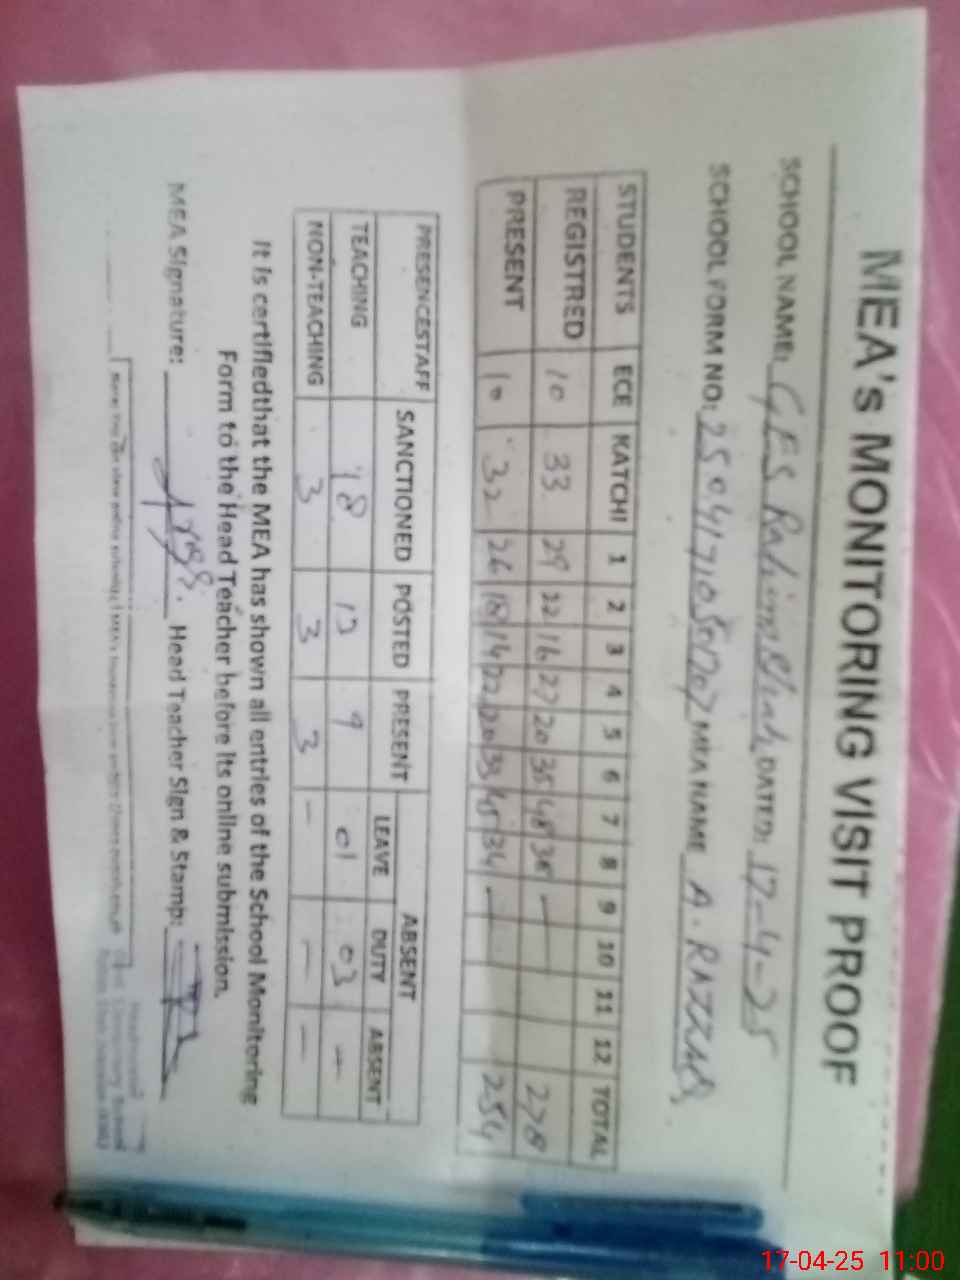 MEA's MONITORING VISIT PROOF
SCHOOL NAME: GES DATED: 17-4-25
SCHOOL FORM NO: MEA NAME A. RAZZAQ
STUDENTS ECE KATCHI 1 2 3 4 5 6 7 8 9 10 11 12 TOTAL
REGISTRED 10 33 29 22 16 27 20 35 48 38 — 278
PRESENT 10 32 26 18 14 22 20 33 45 34 — 254
PRESENCESTAFF SANCTIONED POSTED PRESENT ABSENT
LEAVE DUTY ABSENT
TEACHING 18 13 9 01 03 —
NON-TEACHING 3 3 3 — — —
It is certifiedthat the MEA has shown all entries of the School Monitering
Form to the Head Teacher before its online submission.
MEA Signature: Head Teacher Sign & Stamp:
17-04-25 11:00